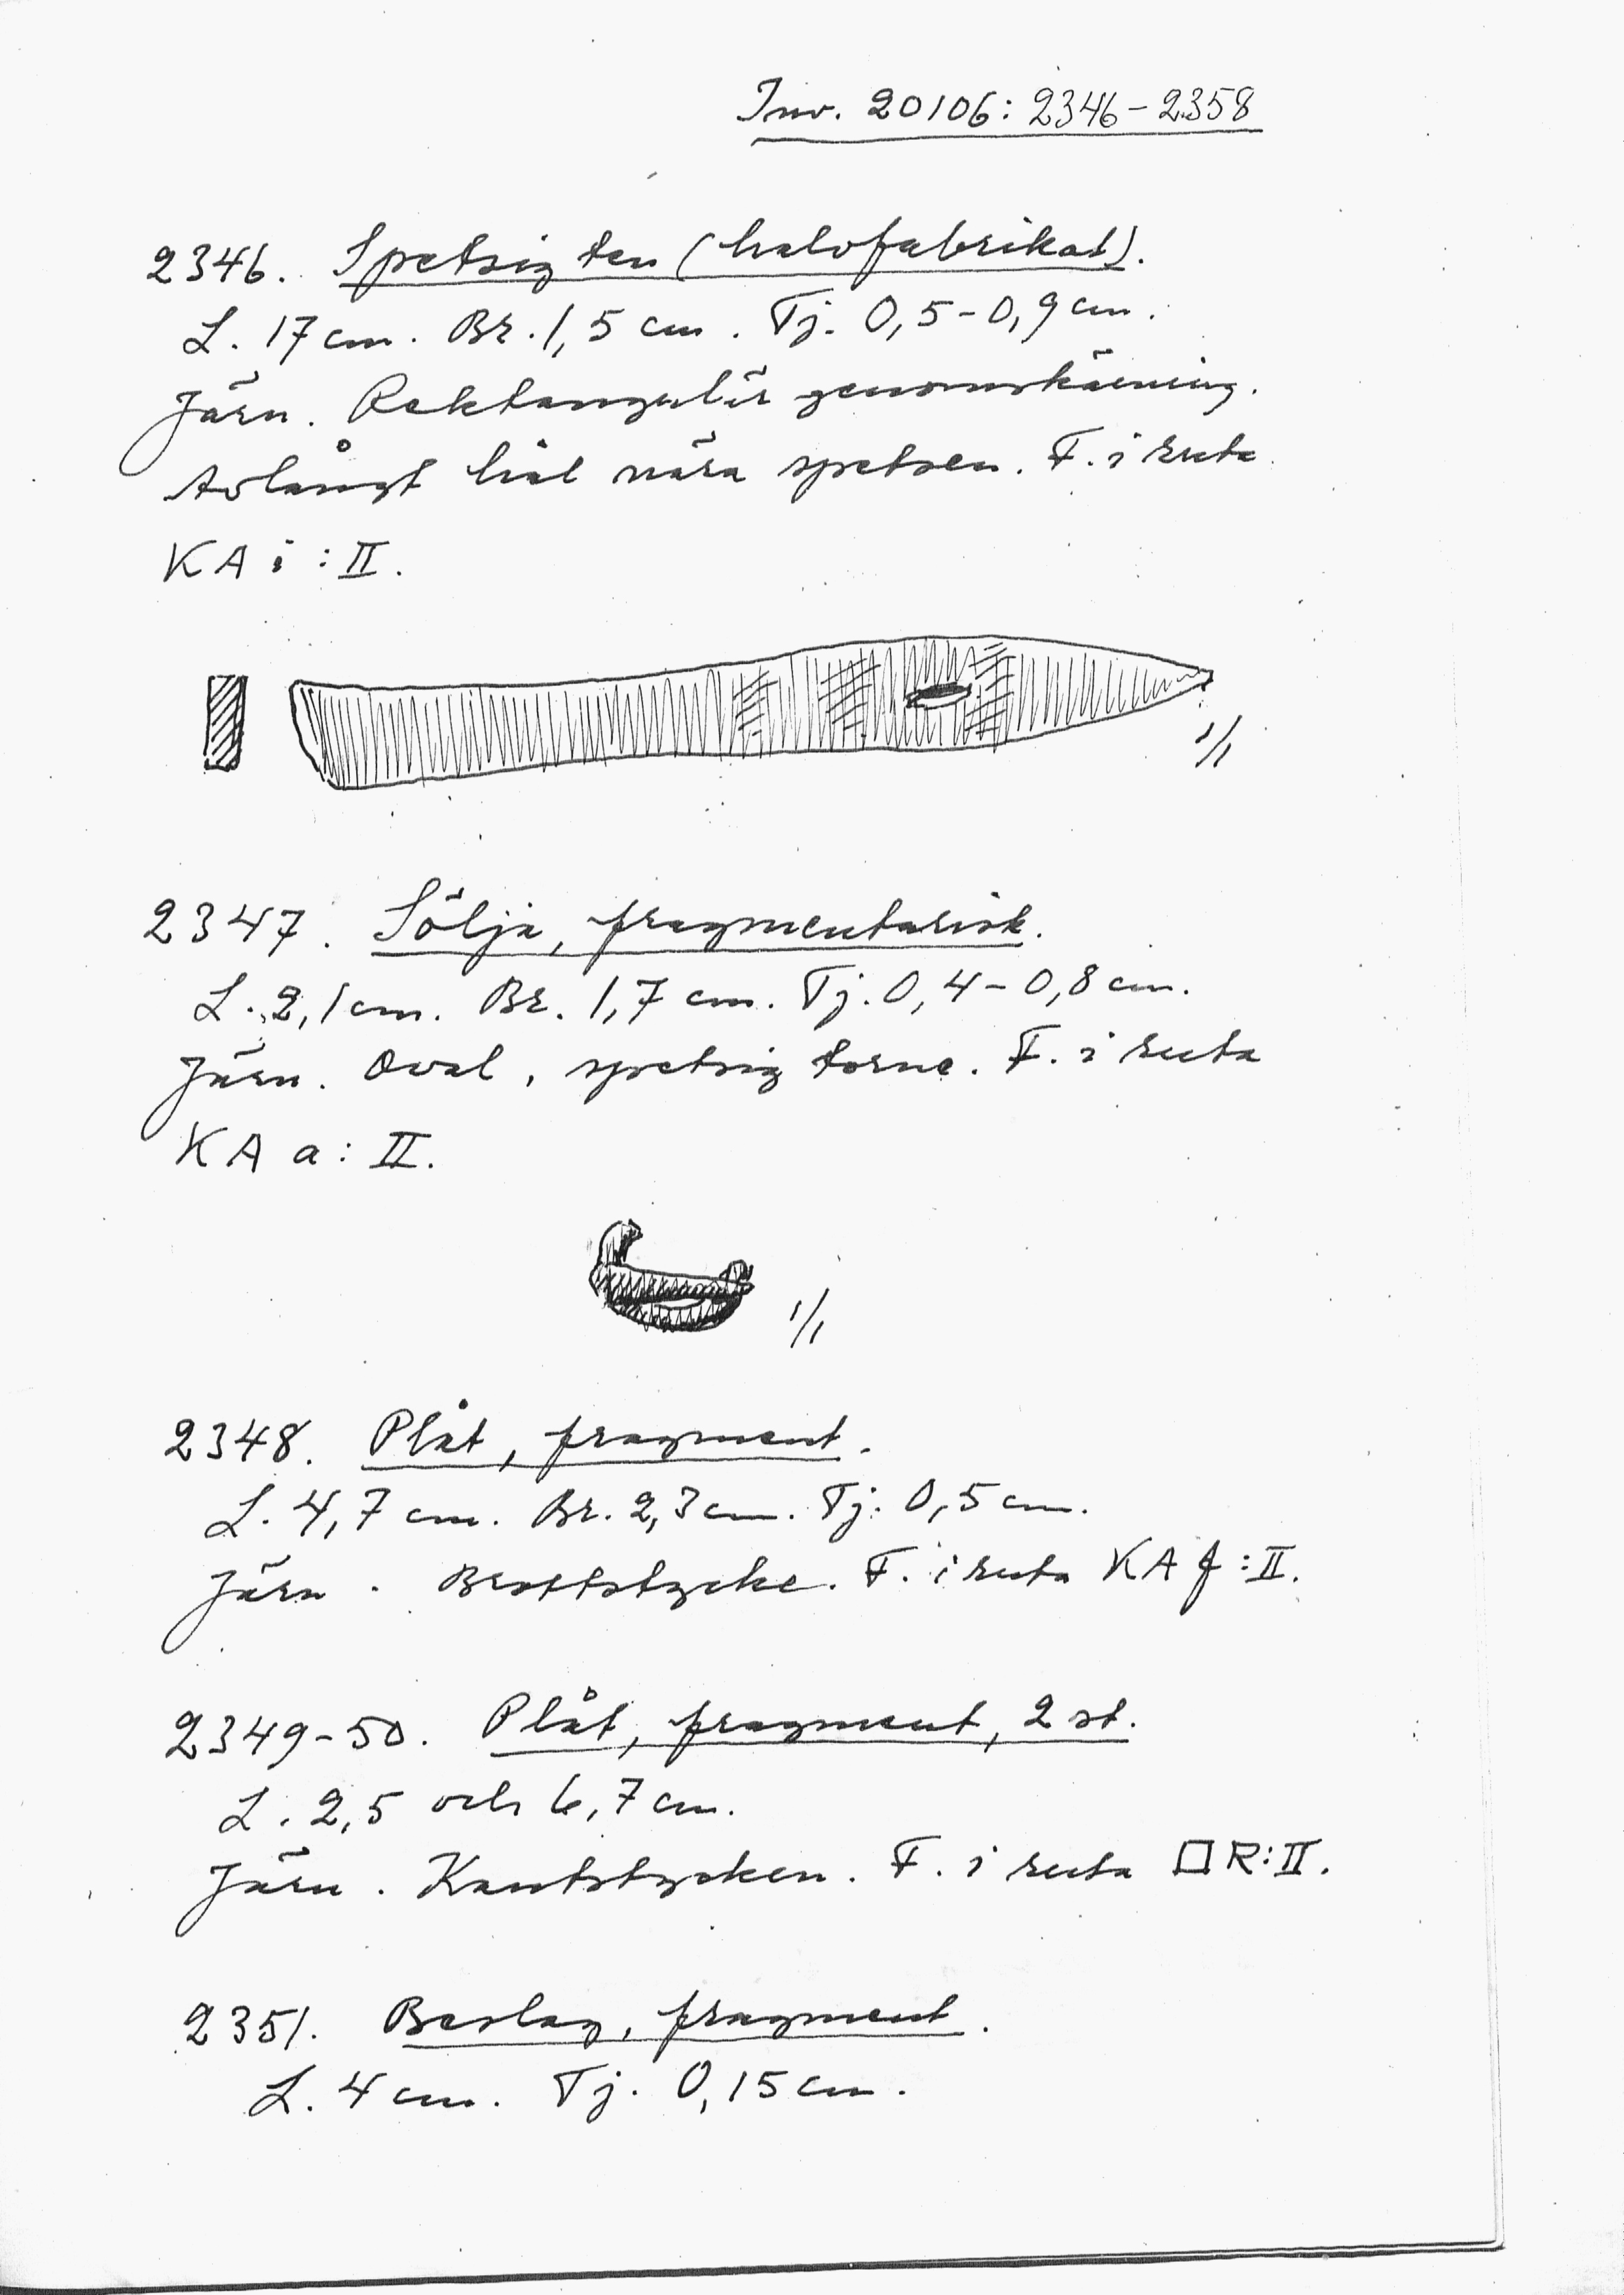 Inv. 20106: 2346-2358
2346. Spetsig ten (halvfabrikat).
L. 17 cm. Br. 1,5 cm. Tj. 0,5-0,9 cm.
Järn. Rektangulär genomskärning.
Avlångt hål nära spetsen. F. i ruta
KA i : II.
1/1
2347. Sölja, fragmentarisk.
L. 2,1 cm. Br. 1,7 cm. Tj. 0,4-0,8 cm.
Järn. Oval, spetsig torne. F. i ruta
KA a : II.
1/1
2348. Plåt, fragment.
L. 4,7 cm. Br. 2,3 cm. Tj. 0,5 cm.
Järn. Brottstycke. F. i ruta KA f : II.
2349-50. Plåt, fragment, 2 st.
L. 2,5 och 6,7 cm.
Järn. Kantstycken. F. i ruta □ R : II.
2351. Beslag, fragment.
L. 4 cm. Tj. 0,15 cm.